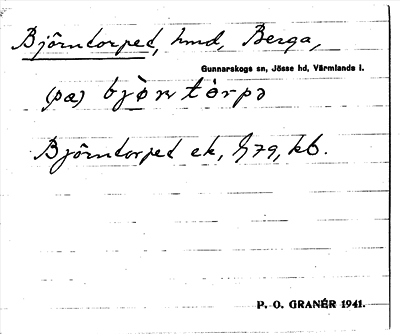 Björntorpet, hmd, Berga,
Gunnarskogs sn, Jösse hd, Värmlands l.
(pa) bjö̀ṇ tòrpə
Björntorpet ek, 479, kb.
P. O. GRANÉR 1941.